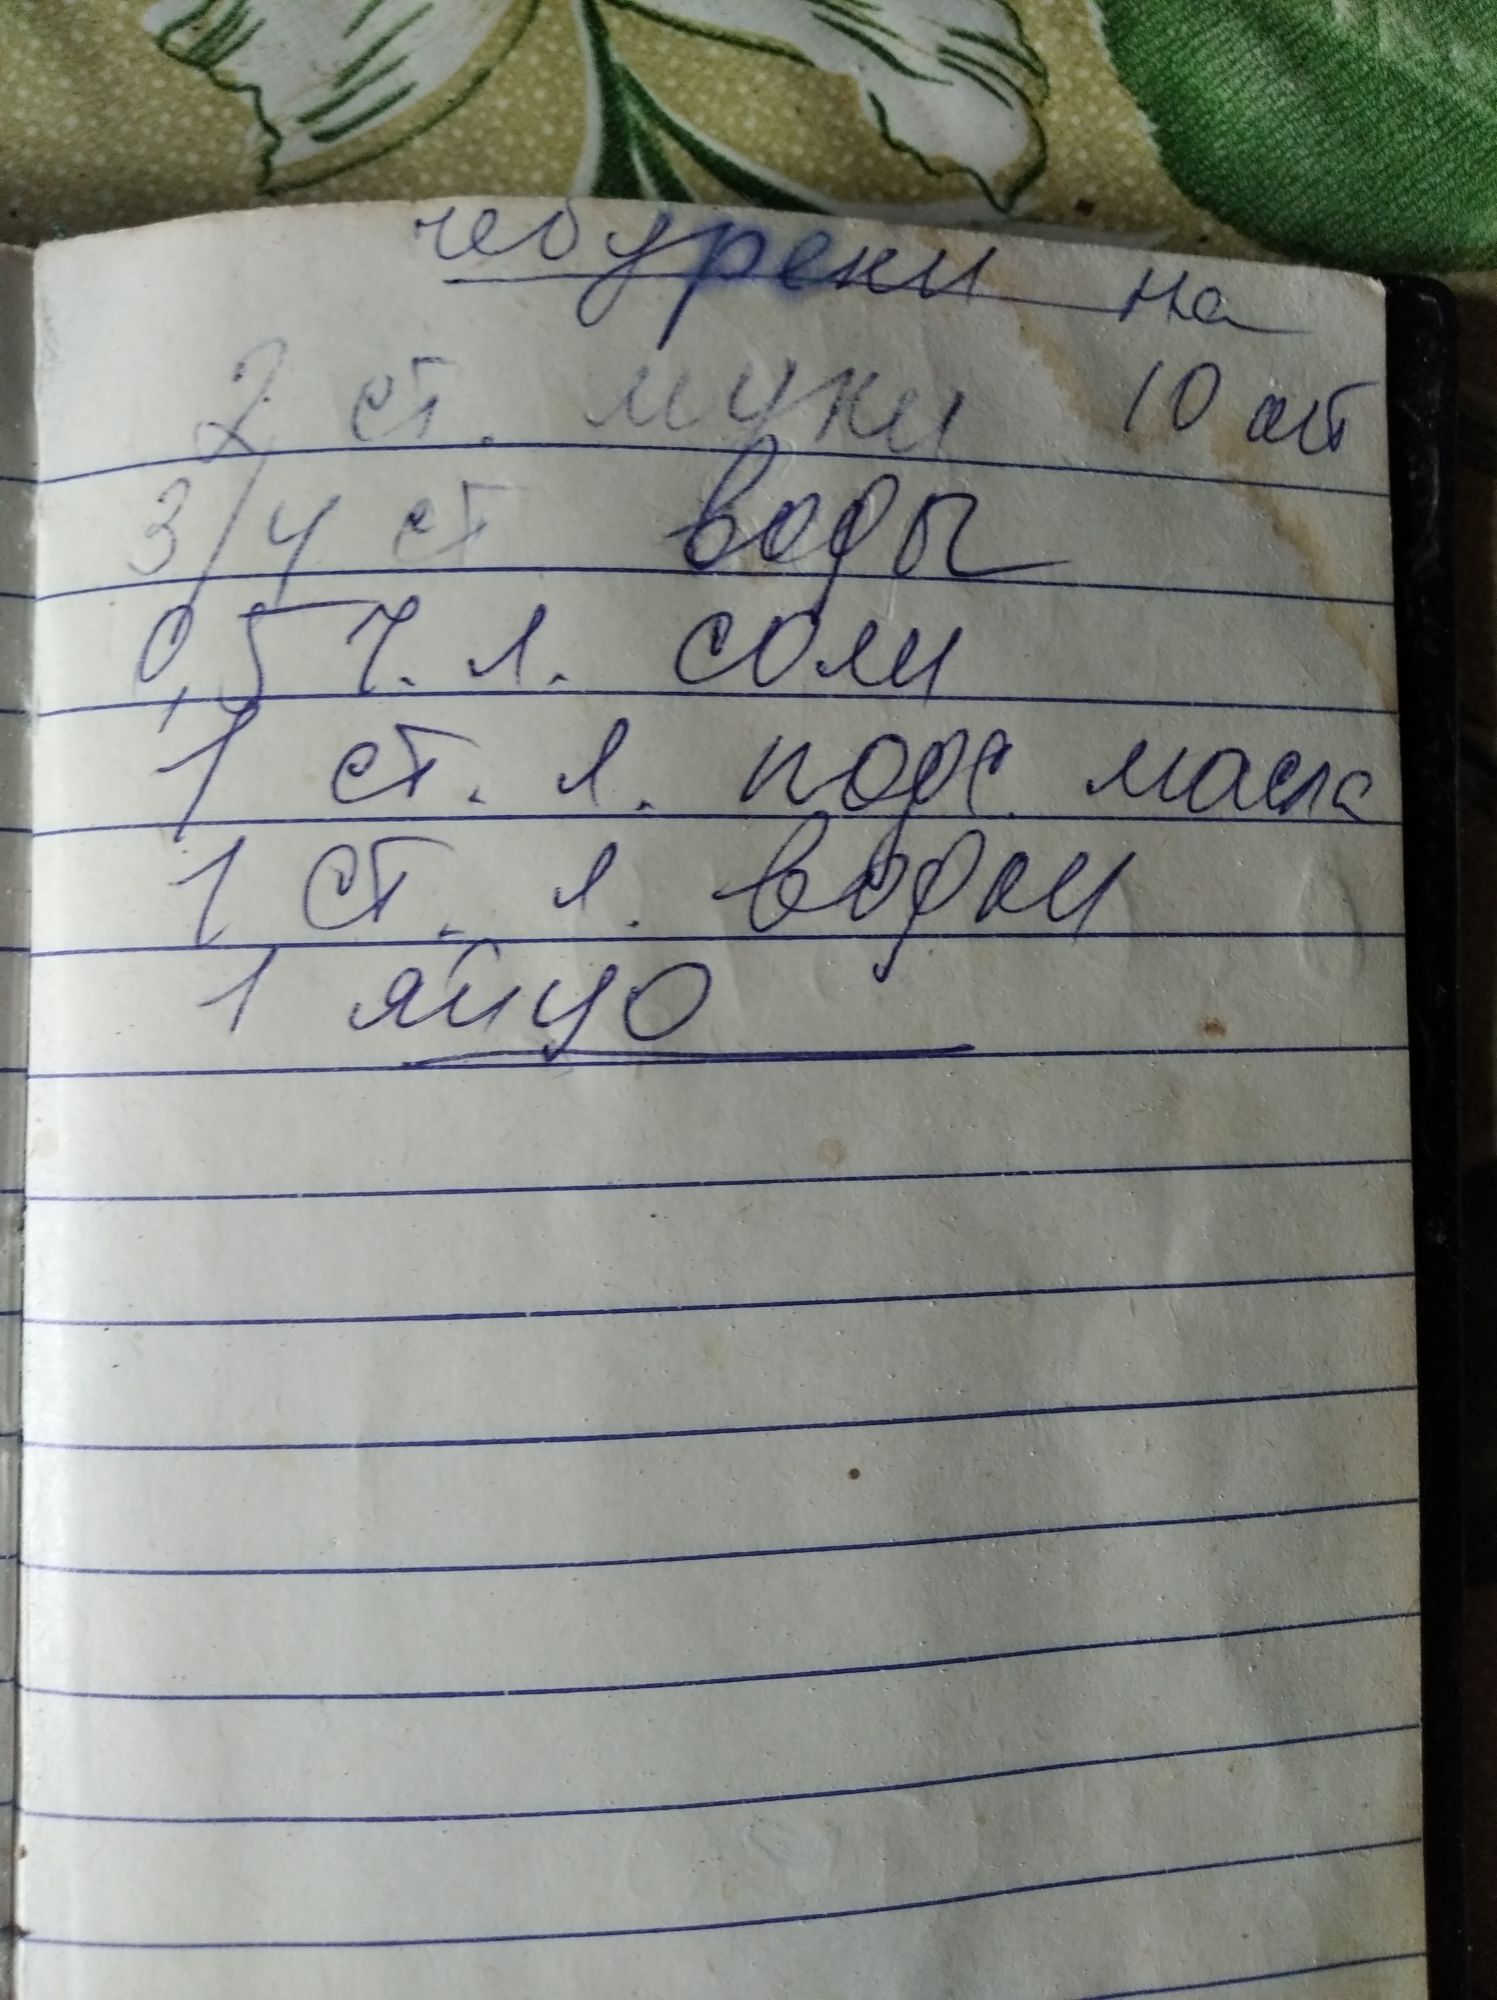 чебуреки на
10 шт
2 ст. муки
3/4 ст воды
0,5 ч. л. соли
1 ст. л. подс. масла
1 ст. л. водки
1 яйцо